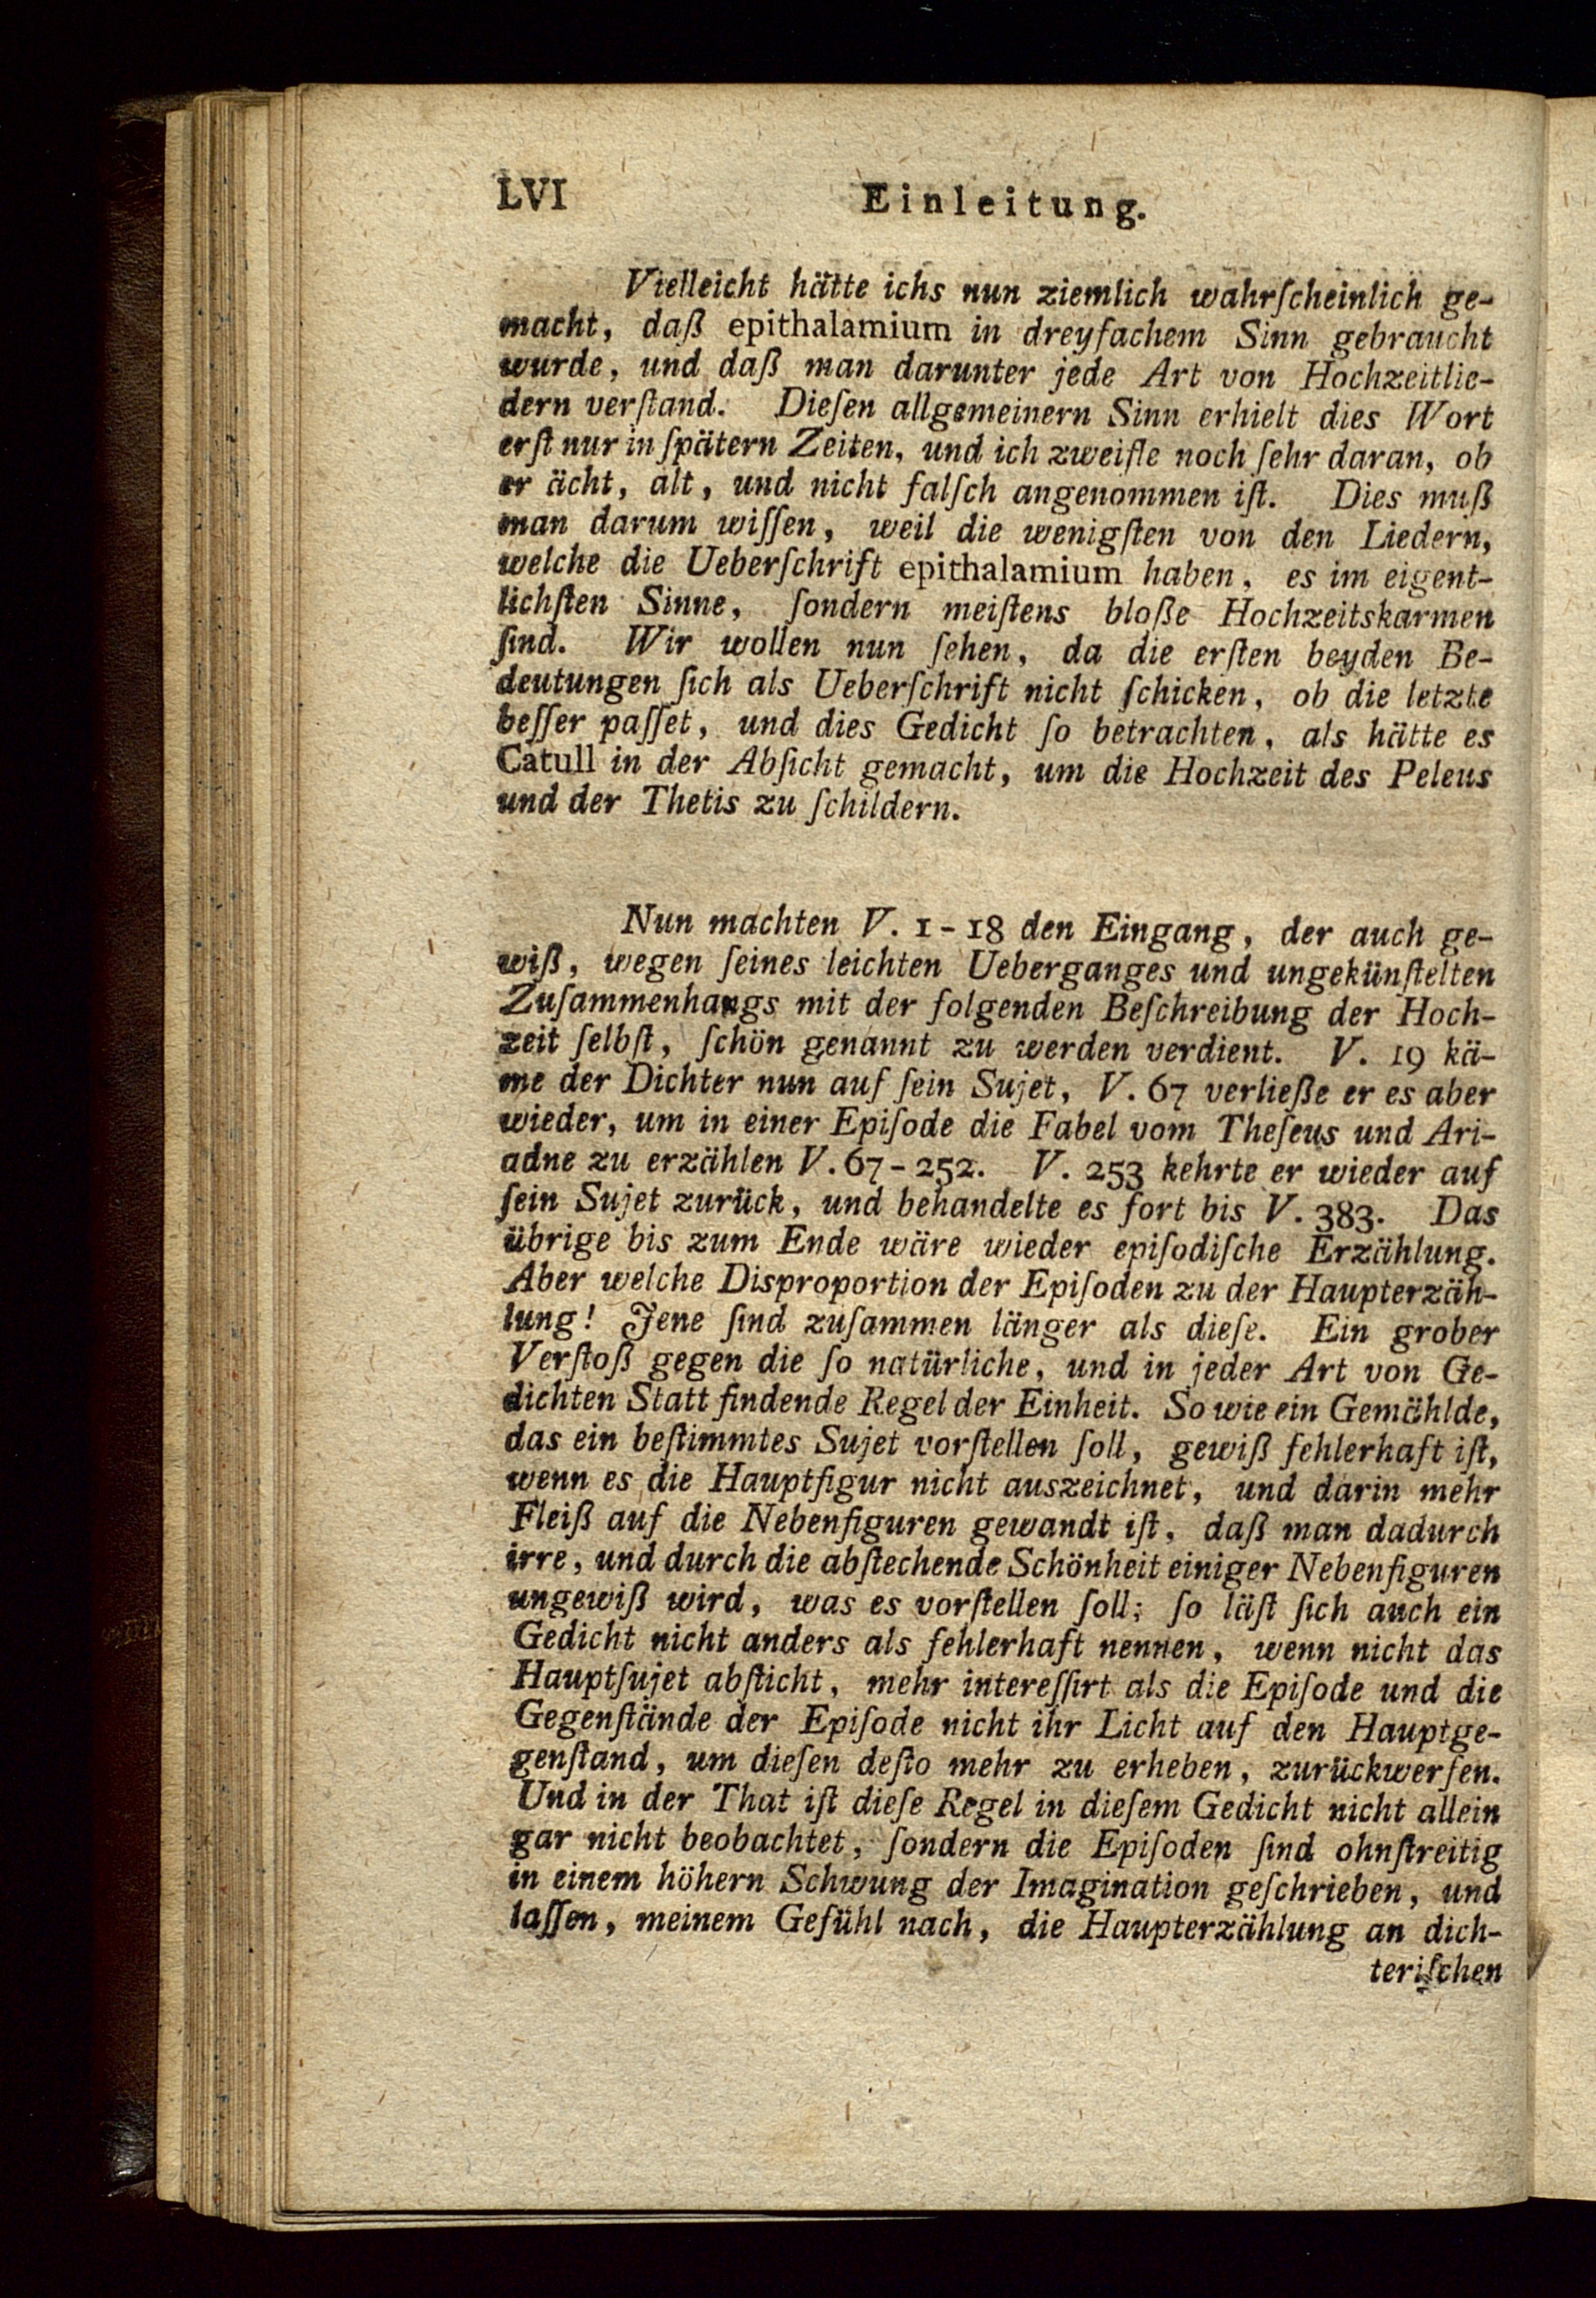 LVI Einleitung.
Vielleicht hätte ichs nun ziemlich wahrſcheinlich ge-
macht, daß epithalamium in dreyfachem Sinn gebraucht
wurde, und daß man darunter jede Art von Hochzeitlie-
dern verſtand. Dieſen allgemeinern Sinn erhielt dies Wort
erſt nur in ſpätern Zeiten, und ich zweifle noch ſehr daran, ob
er ächt, alt, und nicht falſch angenommen iſt. Dies muß
man darum wiſſen, weil die wenigſten von den Liedern,
welche die Ueberſchrift epithalamium haben, es im eigent-
lichſten Sinne, ſondern meiſtens bloße Hochzeitskarmen
ſind. Wir wollen nun ſehen, da die erſten beyden Be-
deutungen ſich als Ueberſchrift nicht ſchicken, ob die letzte
beſſer paſſet, und dies Gedicht ſo betrachten, als hätte es
Catull in der Abſicht gemacht, um die Hochzeit des Peleus
und der Thetis zu ſchildern.
Nun machten V. 1-18 den Eingang, der auch ge-
wiß, wegen ſeines leichten Ueberganges und ungekünſtelten
Zuſammenhangs mit der folgenden Beſchreibung der Hoch-
zeit ſelbſt, ſchön genannt zu werden verdient. V. 19 kä-
me der Dichter nun auf ſein Sujet, V. 67 verließe er es aber
wieder, um in einer Epiſode die Fabel vom Theſeus und Ari-
adne zu erzählen V. 67-252. V. 253 kehrte er wieder auf
ſein Sujet zurück, und behandelte es fort bis V. 383. Das
übrige bis zum Ende wäre wieder epiſodiſche Erzählung.
Aber welche Disproportion der Epiſoden zu der Haupterzäh-
lung! Jene ſind zuſammen länger als dieſe. Ein grober
Verſtoß gegen die ſo natürliche, und in jeder Art von Ge-
dichten Statt findende Regel der Einheit. So wie ein Gemählde,
das ein beſtimmtes Sujet vorſtellen ſoll, gewiß fehlerhaft iſt,
wenn es die Hauptfigur nicht auszeichnet, und darin mehr
Fleiß auf die Nebenfiguren gewandt iſt, daß man dadurch
irre, und durch die abſtechende Schönheit einiger Nebenfiguren
ungewiß wird, was es vorſtellen ſoll; ſo läſt ſich auch ein
Gedicht nicht anders als fehlerhaft nennen, wenn nicht das
Hauptſujet abſticht, mehr intereſſirt als die Epiſode und die
Gegenſtände der Epiſode nicht ihr Licht auf den Hauptge-
genſtand, um dieſen deſto mehr zu erheben, zurückwerfen.
Und in der That iſt dieſe Regel in dieſem Gedicht nicht allein
gar nicht beobachtet, ſondern die Epiſoden ſind ohnſtreitig
in einem höhern Schwung der Imagination geſchrieben, und
laſſen, meinem Gefühl nach, die Haupterzählung an dich-
teriſchen